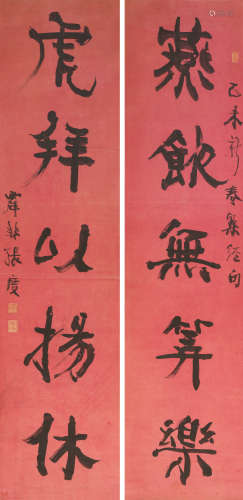 乙未新春集經句
燕飲無筭樂
虎拜以揚休
張度